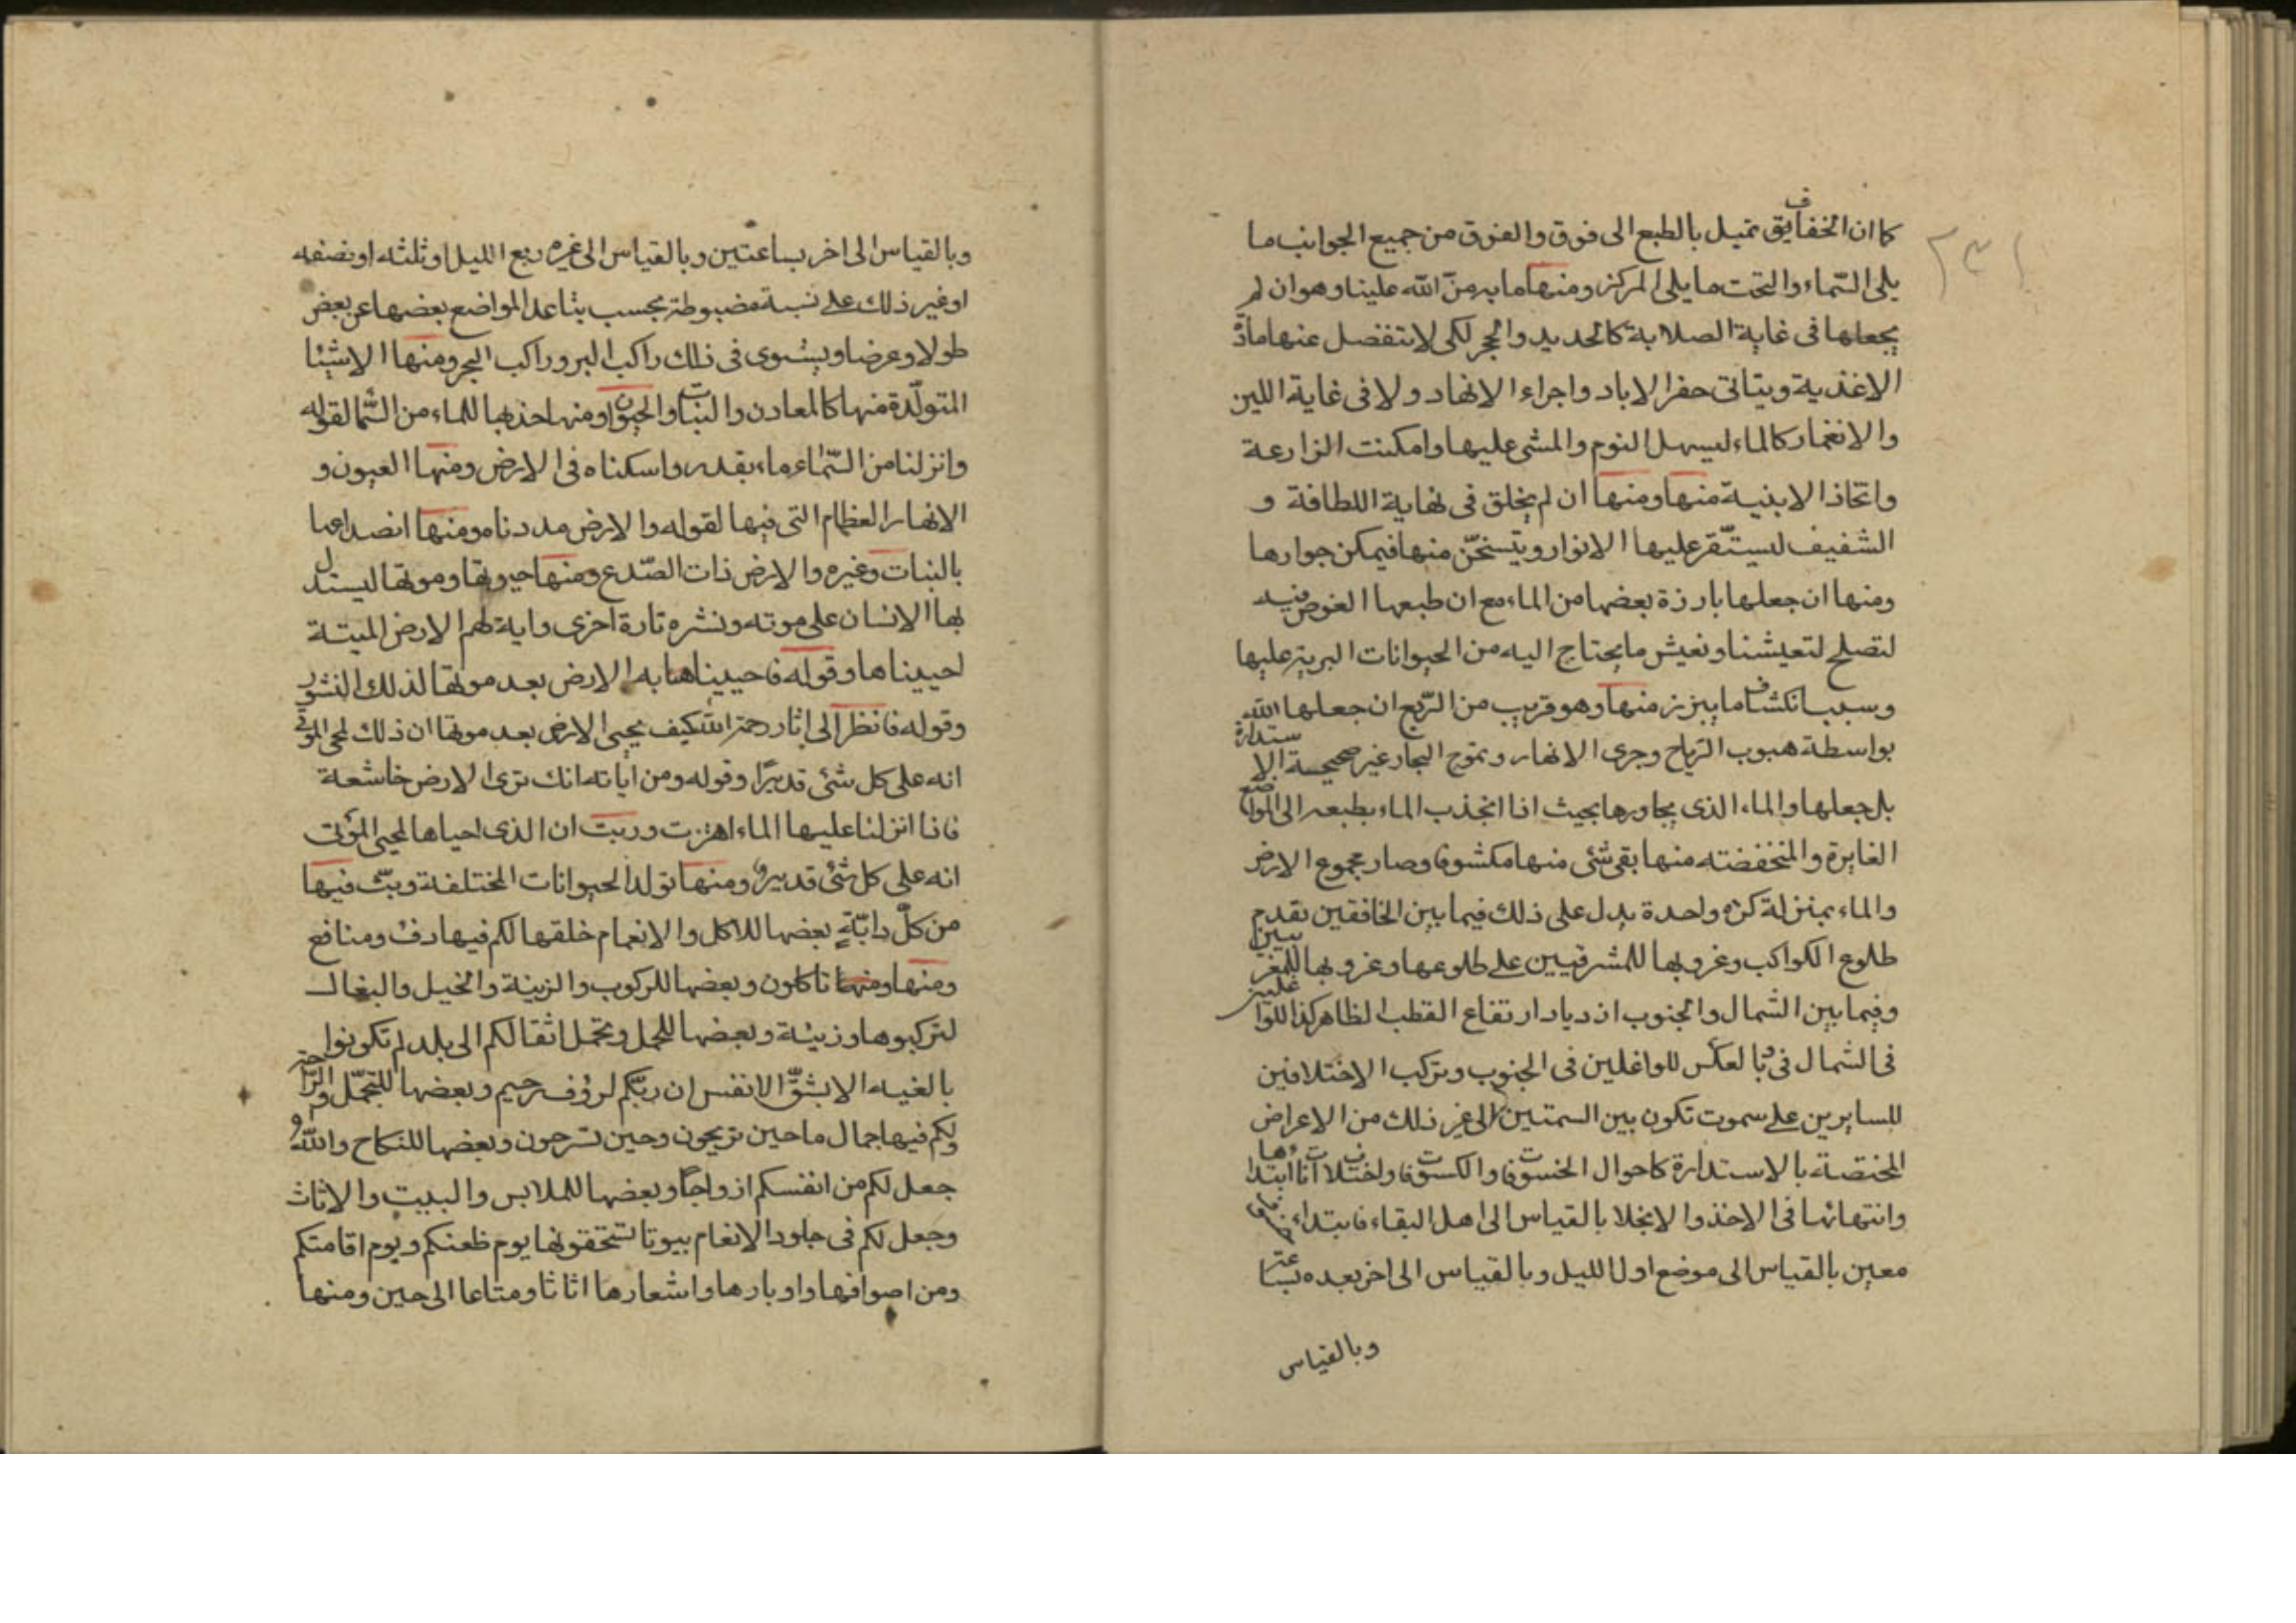 كما ان الخفايق تميل بالطبع الى فوق والفوق من جميع الجوانب ما
يلى السّماء والتحت ما يلى المركز ومنها ما به منّ الله علينا وهو ان لم
يجعلها فى غاية الصلابة كالحديد والحجر لكى لا تنفصل عنها مادّة
الاغذية ويتاتى حفر الابار واجراء الانهار ولا فى غاية اللين
والانغمار كالماء ليسهل النوم والمشى عليها وامكنت الزارعة
واتخاذ الابنية منها ومنها ان لم يخلق فى نهاية اللطافة و
الشفيف ليستّقر عليها الانوار ويتسخّن منها فيمكن جوارها
ومنها ان جعلها بارزة بعضها من الماء مع ان طبعها الغوص فيه
لتصلح لتعيشنا وتعيش ما يحتاج اليه من الحيوانات البرية عليها
وسبب انكشاف ما يبرز منها وهو قريب من الرّبع ان جعلها الله
بواسطة هبوب الرّياح وجرى الانهار وتموج البحار غير صحيحة الاستدارة
بل جعلها والماء الذى يجاورها بحيث اذا انجذب الماء بطبعه الى المواضع
الغايرة والمنخفضته منها بقى شئى منها مكشوفا وصار مجموع الارض
والماء بمنزلة كرة واحدة يدل على ذلك فيما بين الخافقين تقدم
طلوع الكواكب وغروبها للمشرقيين على طلوعها وغروبها للمغربيين
وفيما بين الشمال والجنوب ازدياد ارتفاع القطب الظاهر كذا للواغلين
فى الشمال فى وبالعكس للواغلين فى الجنوب وتركب الاختلافين
للسايرين على سموت تكون بين السمتين الى غير ذلك من الاعراض
المختصة بالاستدارة كاحوال الخسوفات والكسوفات واختلافات ابتداءها
وانتهائها فى الاخذ والانجلا بالقياس الى اهل البقاء فابتداء
معين بالقياس الى موضع اول الليل وبالقياس الى اخر بعده بساعة
وبالقياس
وبالقياس الى اخر بساعتين وبالقياس الى غيره ربع الليل او ثلثه او نصفه
او غير ذلك على نسبة مضبوطة بحسب تباعد المواضع بعضها عن بعض
طولا وعرضا ويستوى فى ذلك راكب البر وراكب البحر ومنها الاشيئا
المتولّدة منها كالمعادن والنبات والحيوان ومنها جذبها للماء من السّما لقوله
وانزلنا من السّماء ماء بقدر واسكناه فى الارض ومنها العيون و
الانهار العظام التى فيها لقوله والارض مددناه ومنها انصداعها
بالنبات وغيره والارض ذات الصّدع ومنها حيوتها وموتها ليستدل
بها الانسان على موته ونشره تارة اخرى واية لهم الارض الميتة
احييناها وقوله فاحييناها به الارض بعد موتها لذلك النشور
وقوله فانظر الى اثار رحمة الله كيف يحيى الارض بعد موتها ان ذلك لمحى الموتى
انه على كل شئى قديرًا وقوله ومن اياته انك ترى الارض خاشعة
فاذا انزلنا عليها الماء اهتزت وربت ان الذى احياها لمحيى الموتى
انه على كل شئى قدير ومنها تولد الحيوانات المختلفة وبثّ فيها
من كلّ دابّةٍ بعضها للاكل والانعام خلقها لكم فيها دفئ ومنافع
ومنها ومنها تاكلون وبعضها للركوب والزينة والخيل والبغال
لتركبوها وزينة وبعضها للحمل وتحمل اثقالكم الى بلد لم تكونوا
بالغيه الا بشقّ الانفس ان ربّكم لرؤف رحيم وبعضها للتجمّل والرّاحة
ولكم فيها جمال ما حين تريحون وحين تسرحون وبعضها للنكاح والله
جعل لكم من انفسكم ازواجًا وبعضها للملابس والبيت والاثاث
وجعل لكم فى جلود الانعام بيوتا تستخفونها يوم ظعنكم ويوم اقامتكم
ومن اصوافها واوبارها واشعارها اثاثا ومتاعا الى حين ومنها